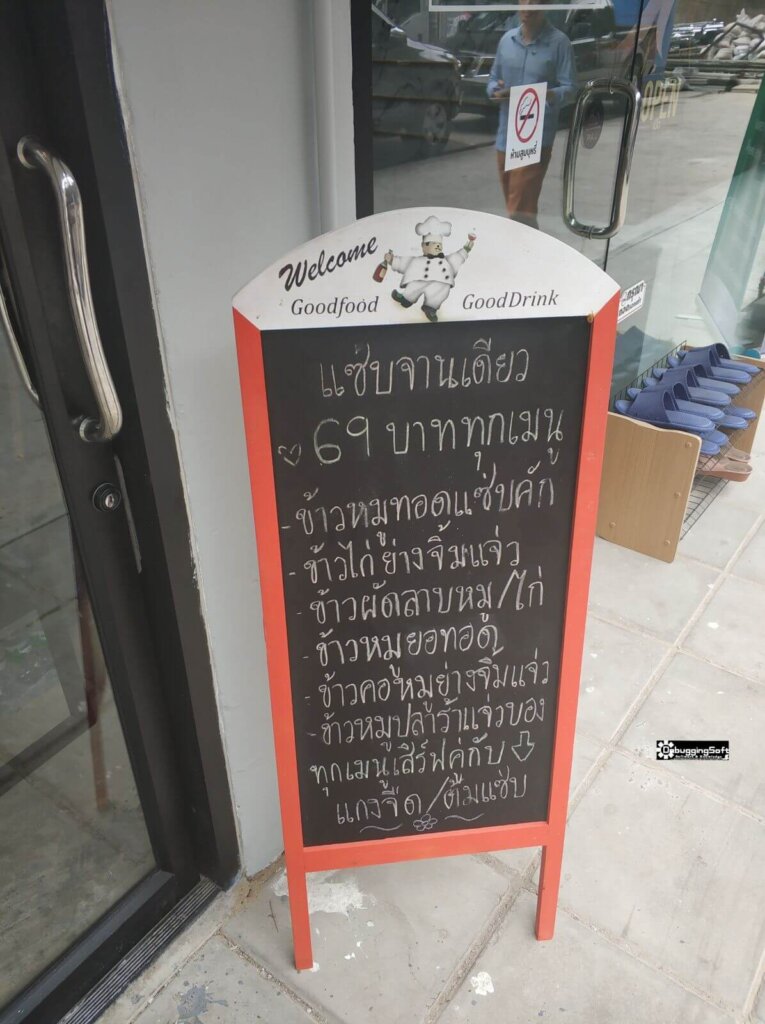 OPEN
ห้ามสูบบุหรี่
Welcome
Goodfood GoodDrink
แซ่บจานเดียว
69 บาททุกเมนู
- ข้าวหมูทอดแซ่บคัก
- ข้าวไก่ย่างจิ้มแจ่ว
- ข้าวผัดลาบหมู/ไก่
- ข้าวหมูยอทอด
- ข้าวคอหมูย่างจิ้มแจ่ว
- ข้าวหมูปลาร้าแจ่วบอง
ทุกเมนูเสิร์ฟคู่กับ
แกงจืด/ต้มแซ่บ
DebuggingSoft